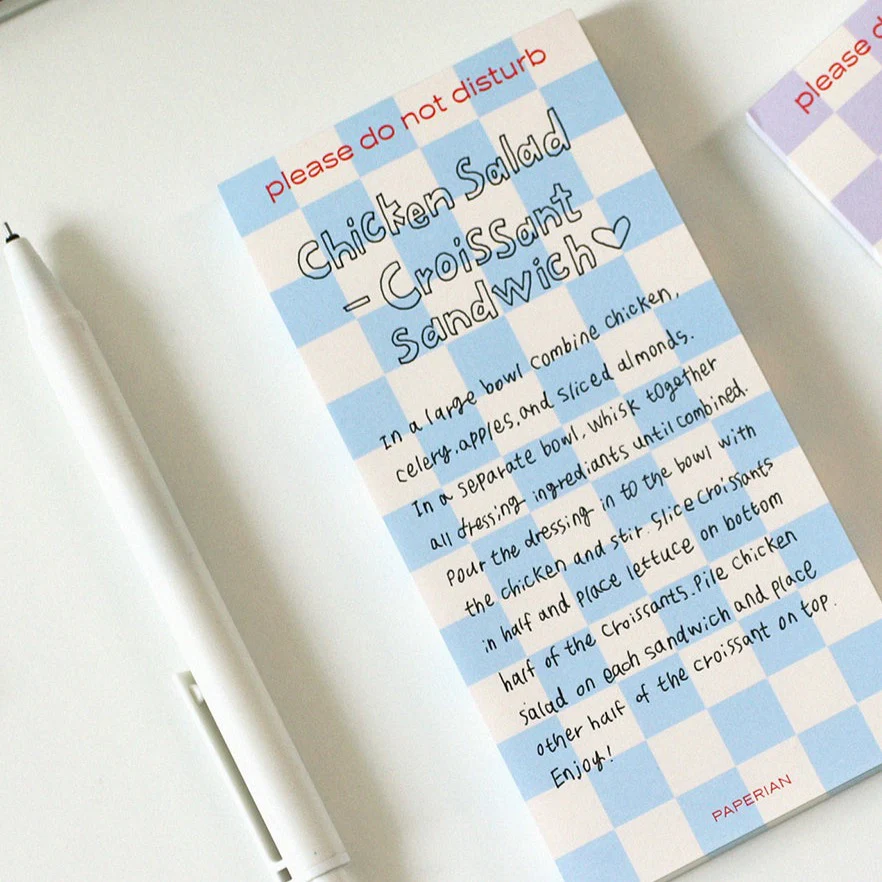 please do not disturb
Chicken Salad
- Croissant
Sandwich♡
In a large bowl combine chicken,
celery, apples, and sliced almonds.
In a separate bowl, whisk together
all dressing ingrediants until combined.
Pour the dressing in to the bowl with
the chicken and stir. Slice Croissants
in half and place lettuce on bottom
half of the Croissants. Pile Chicken
Salad on each sandwich and place
other half of the croissant on top.
Enjoy!
PAPERIAN
please d